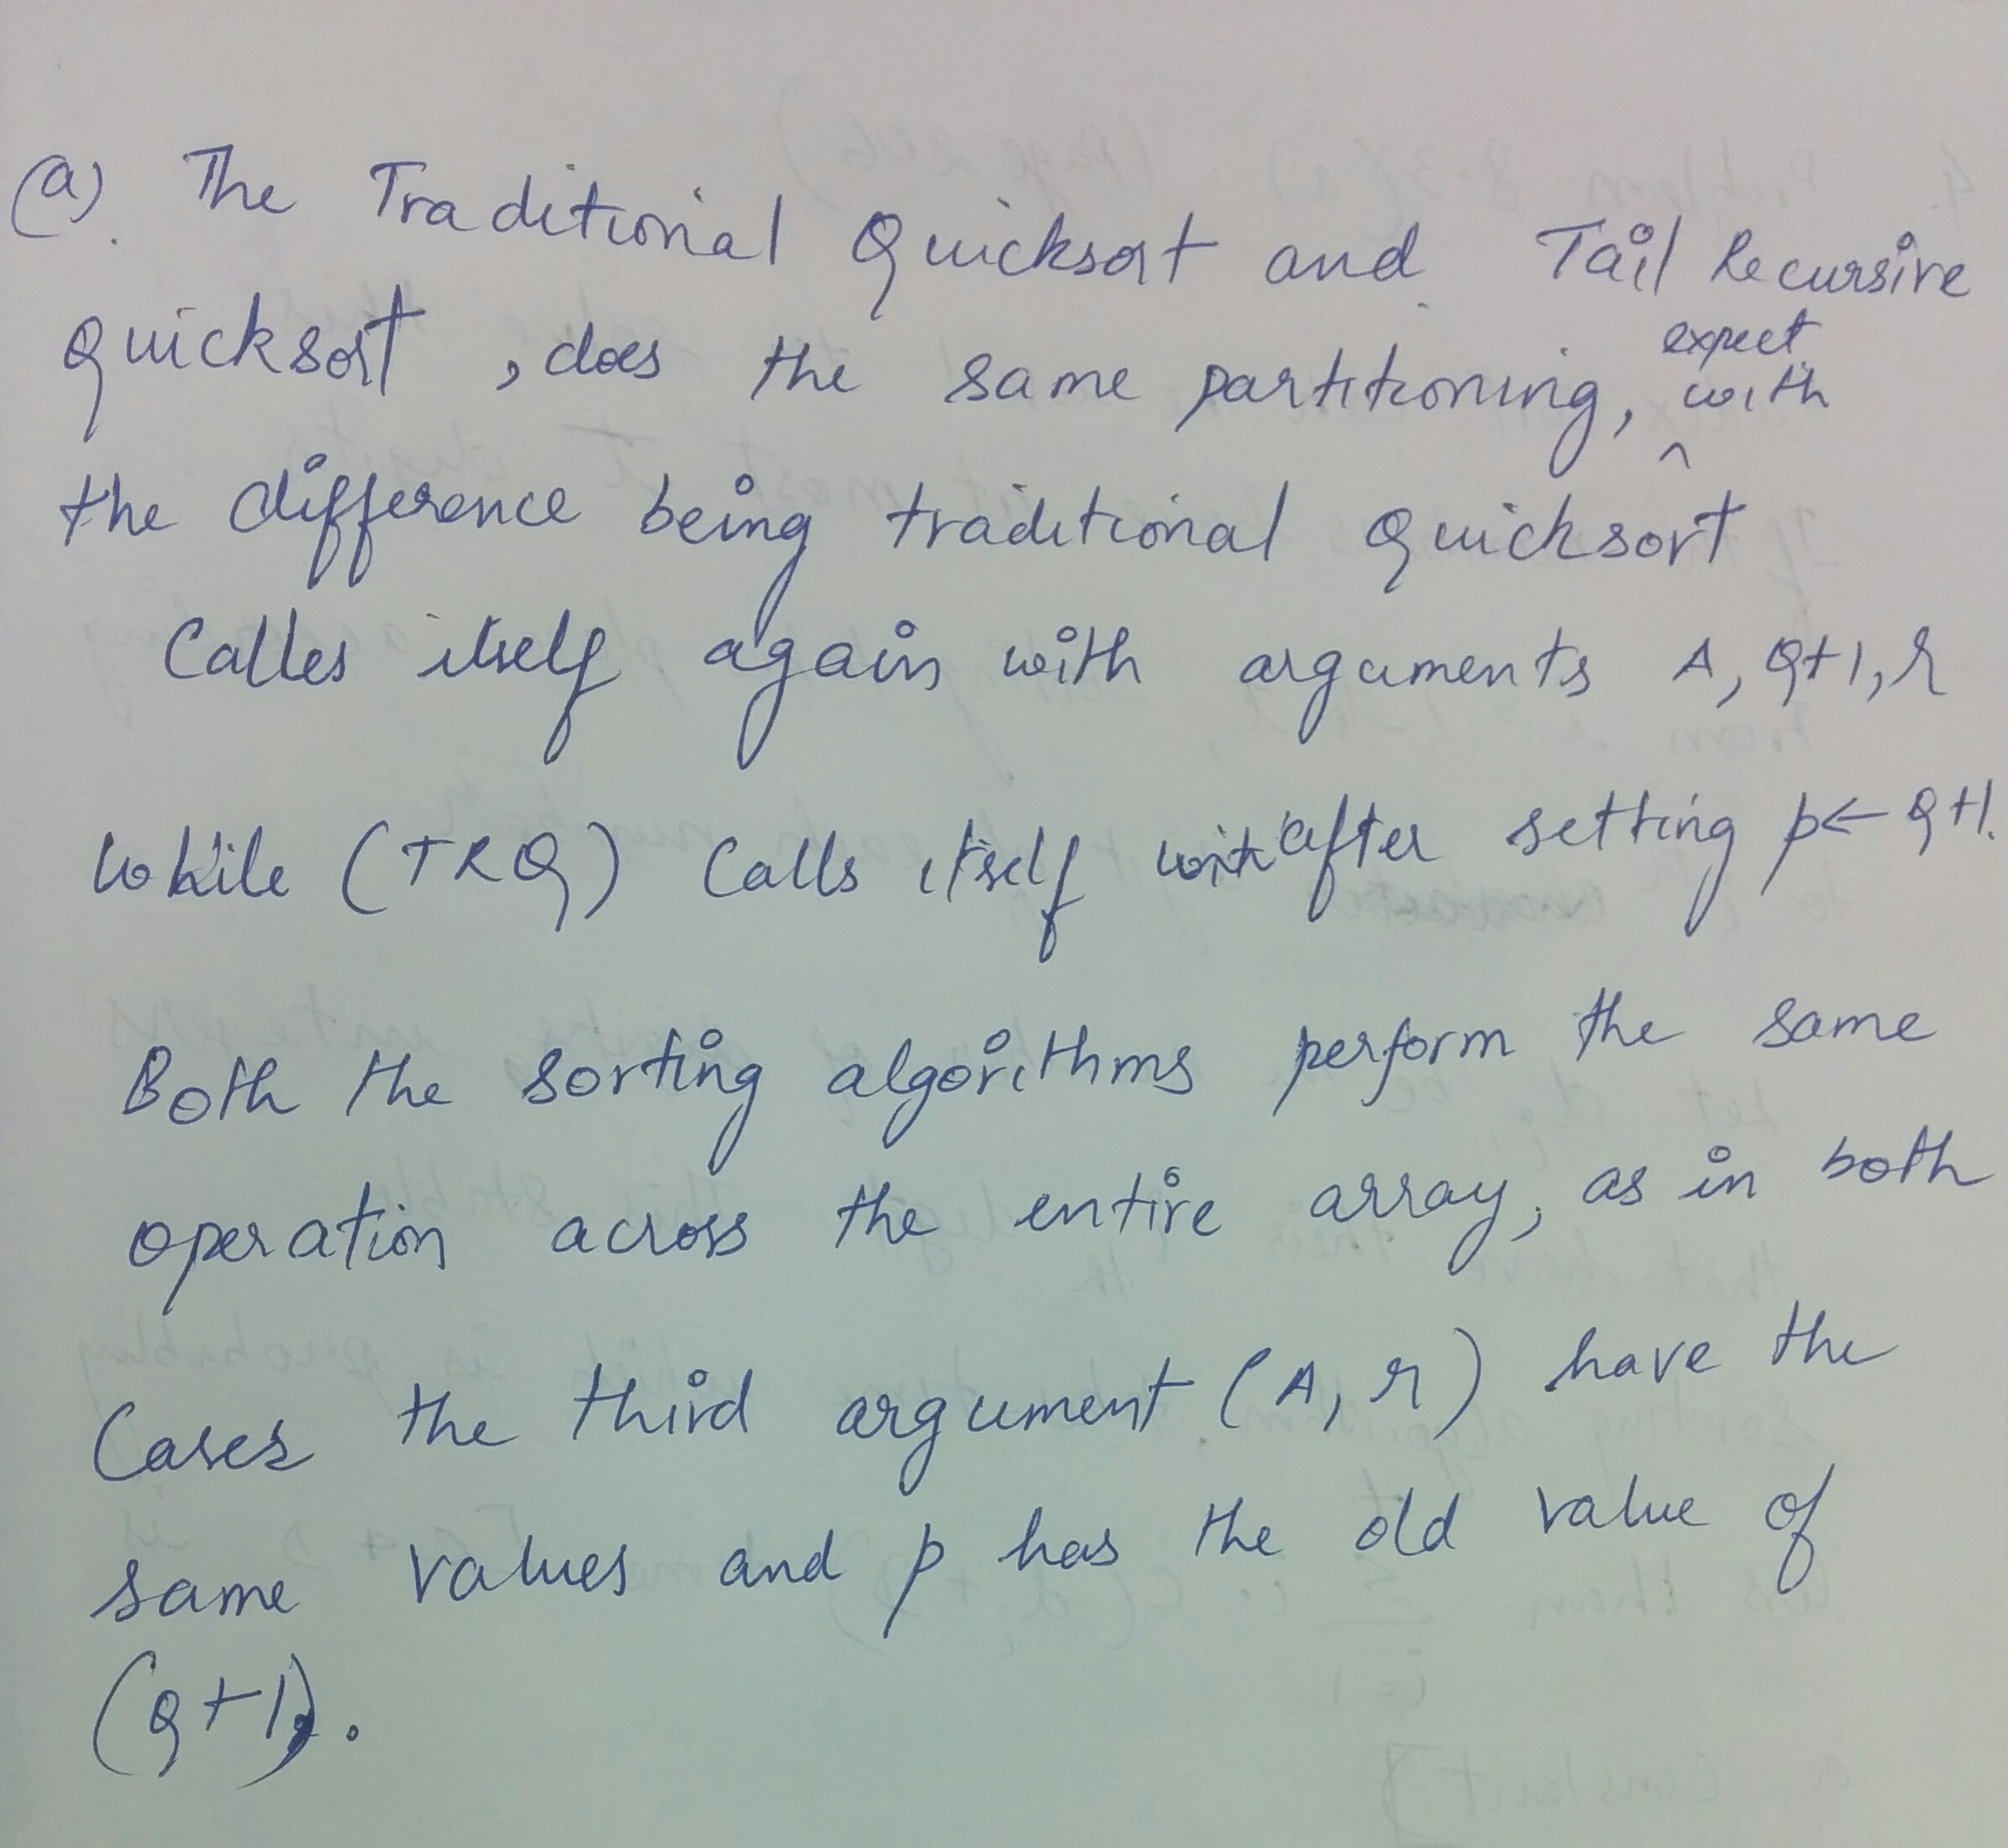 (a). The Traditional Quicksort and Tail Recursive
quicksort , does the same partitioning, expect with
the difference being traditional Quicksort
Calles itself again with arguments A, q+1, r
While (TRQ) Calls itself with after setting p ← q+1.
Both the sorting algorithms perform the same
operation across the entire array, as in both
Cases the third argument (A, r) have the
same values and p has the old value of
(q+1).